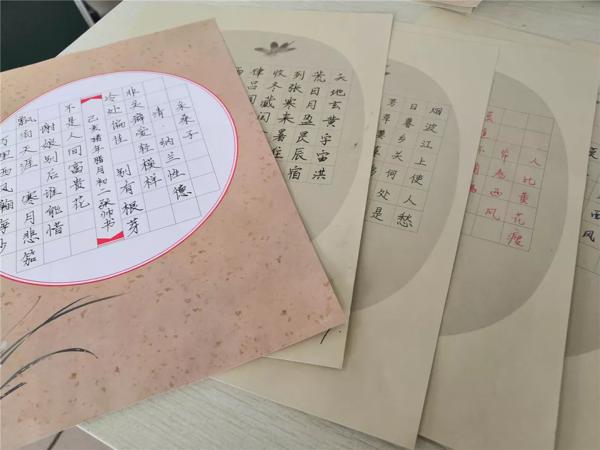 采桑子
清 纳兰性德
非关癖爱轻模样
冷处偏佳 别有根芽
己亥猪年腊月初二 张帅书
不是人间富贵花
谢娘别后谁能惜
飘泊天涯 寒月悲笳
万里西风瀚海沙
天地玄黄宇宙洪
荒日月盈昃辰宿
列张寒来暑往
收冬藏闰
律吕
烟波江上使人愁
日暮乡关何处是
芳草萋萋
人比黄花瘦
卷西风
西风